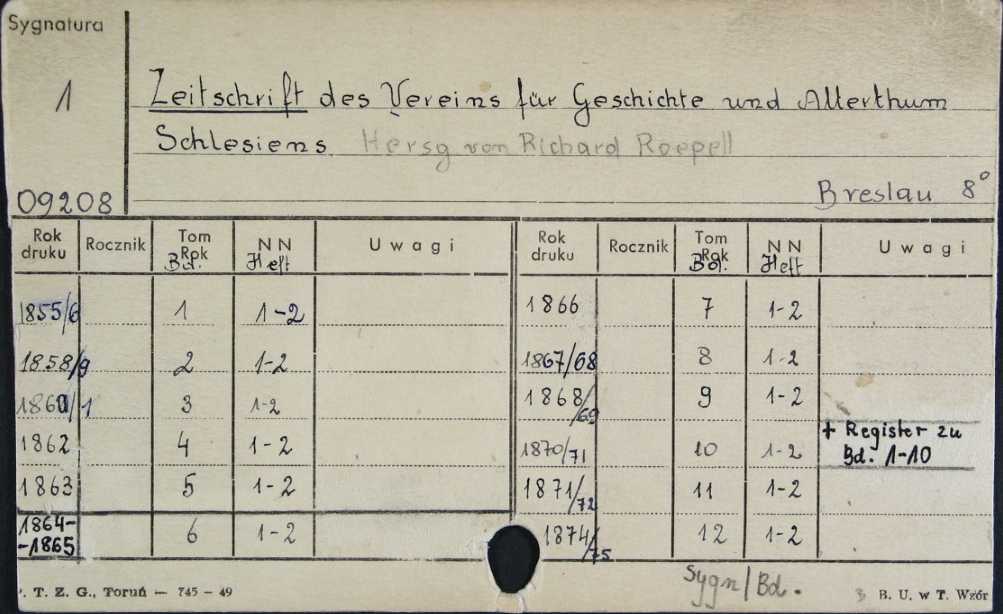 Sygnatura
1
Zeitschrift des Vereins für Geschichte und Alterthum
Schlesiens Hersg von Richard Roepell
09208
Breslau 8°
Rok druku Rocznik Tom Rok Bd. NN Heft Uwagi
1855/6 1 1-2
1858/9 2 1-2
1860/1 3 1-2
1862 4 1-2
1863 5 1-2
1864-
-1865 6 1-2
Rok druku Rocznik Tom Rok Bd. NN Heft Uwagi
1866 7 1-2
1867/68 8 1-2
1868/69 9 1-2
1870/71 10 1-2 + Register zu
Bd. 1-10
1871/72 11 1-2
1874/75 12 1-2
Sygn/Bd.
P. T. Z. G., Toruń — 745 — 49
B. U. w T. Wzór